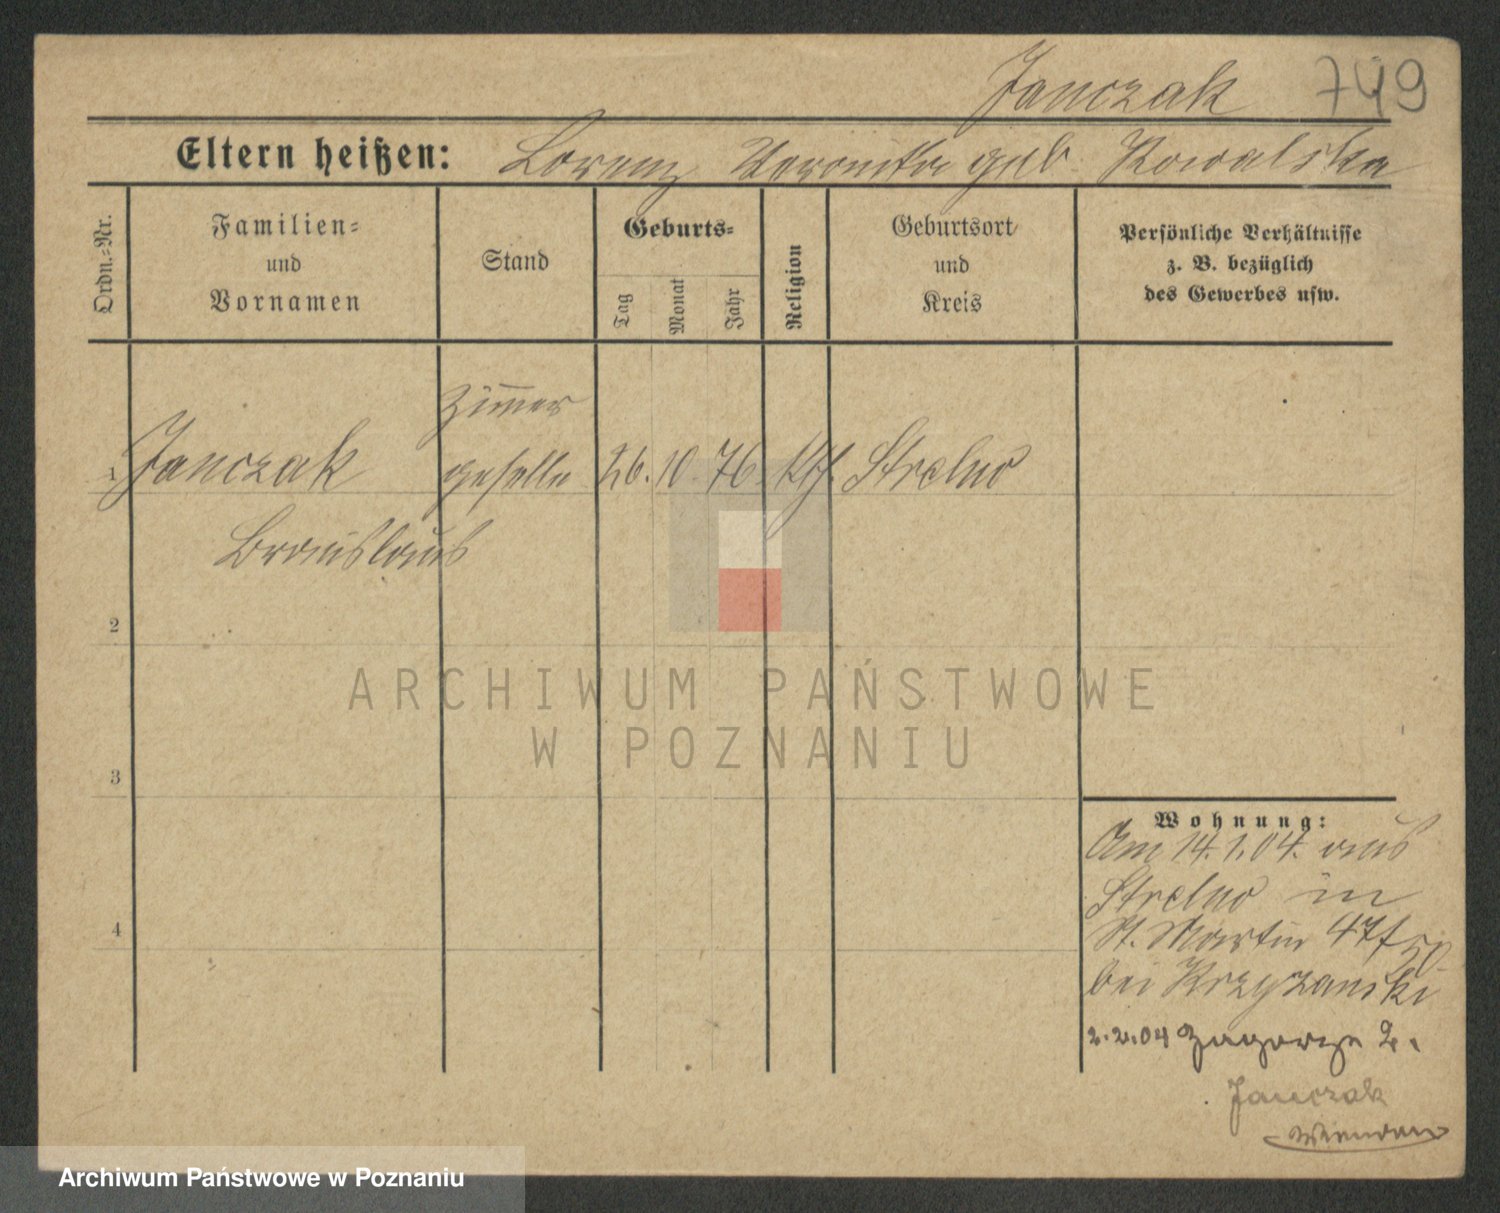 Janczak 749
Eltern heißen: Lorenz Veronika geb. Kowalska
Ordn.-Nr.
Familien-
und
Vornamen
Stand
Geburts-
Tag
Monat
Jahr
Religion
Geburtsort
und
Kreis
Persönliche Verhältnisse
z. B. bezüglich
des Gewerbes usw.
Zimmer
1 Janczak geselle 26. 10. 76. Kth. Strelno
Bronislaus
2
3
4
ARCHIWUM PAŃSTWOWE
W POZNANIU
Wohnung:
Am 14.1.04. aus
Strelno in
St. Martin 47f
bei Krzyzanski
2.2.04 Zagorze 2.
Janczak
Archiwum Państwowe w Poznaniu